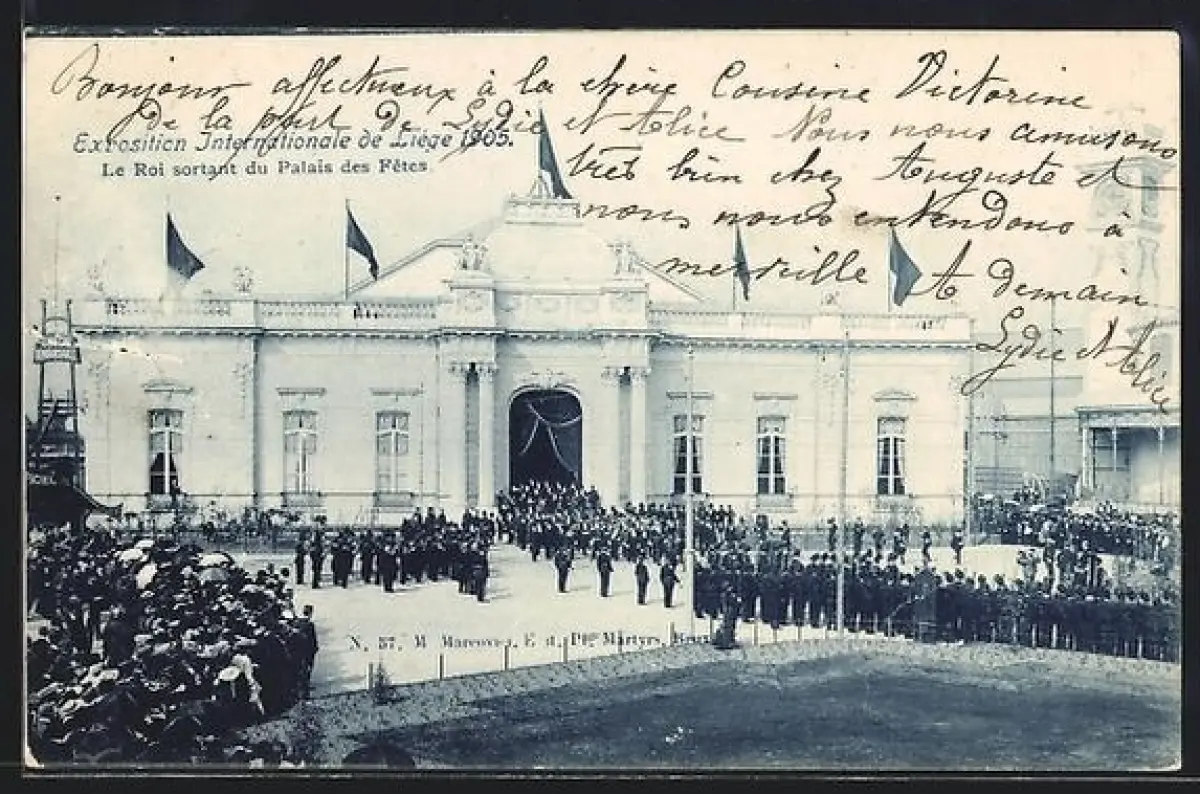 Bonjour affectueux à la chère Cousine Victorine
De la part De Lydie et Alice Nous nous amusons
Exposition Internationale de Liége 1905.
Le Roi sortant du Palais des Fêtes
très bien chez Auguste et
nous nous entendons à
merveille A Demain
Lydie et Alice
N. 57. M Marcovici, E d. Plce Martyrs, Brux